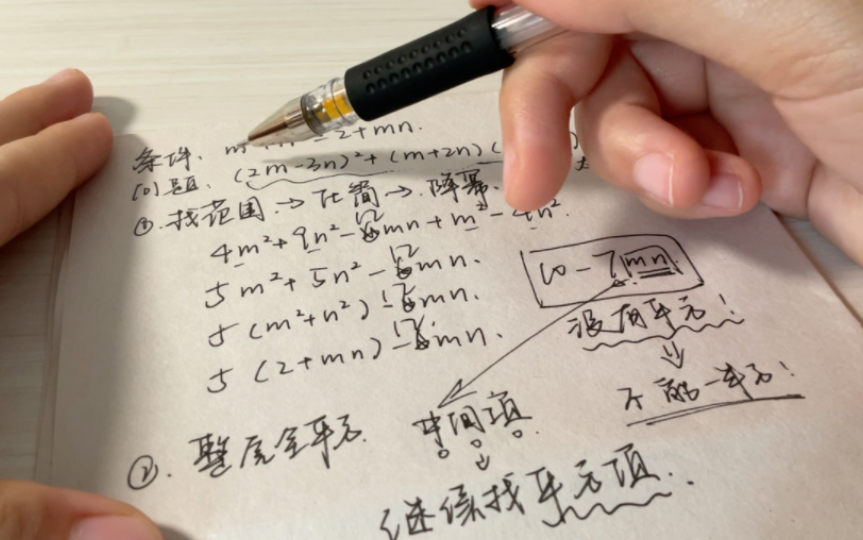 条件. m = 2+mn.
问题. (2m-3n)²+(m+2n)(
①.找范围→化简→降幂.
4m²+9n²-12mn+m²-4n².
5m²+5n²-12mn.
5(m²+n²)-12mn.
5(2+mn)-12mn.
10-7mn
没有平方!
不能一半方!
②. 整店全平方.
中间项.
继续找平方项.